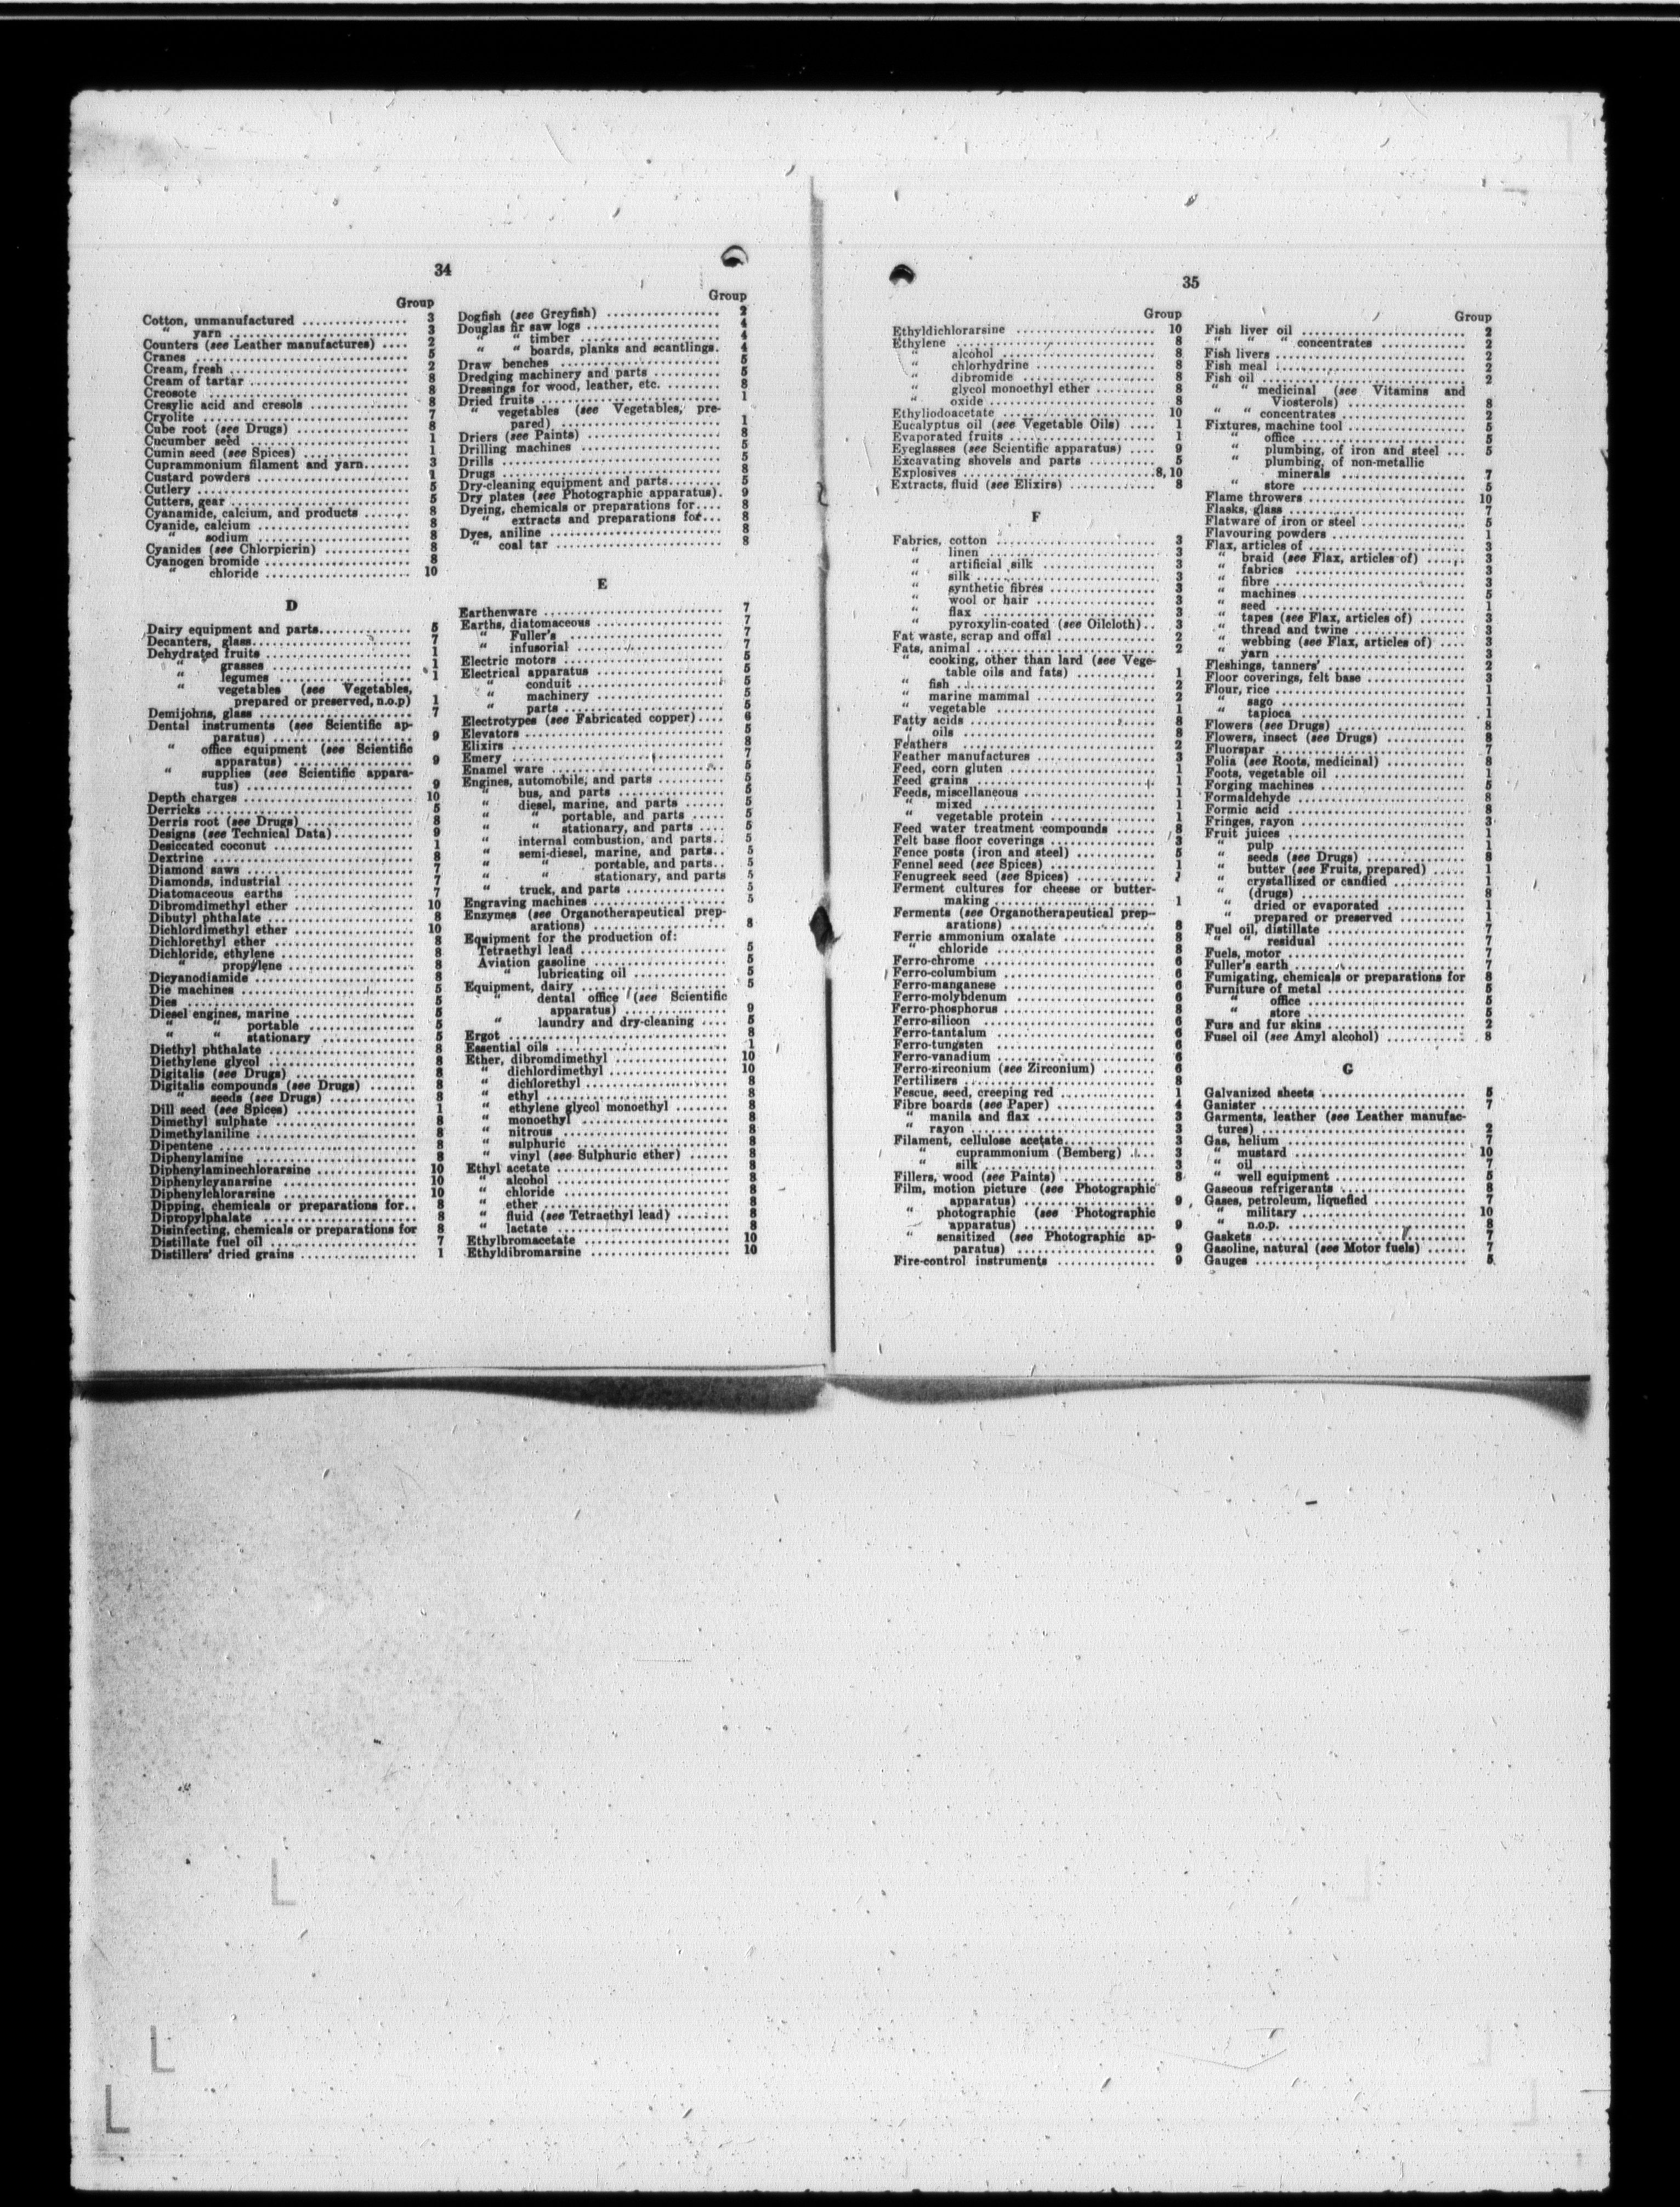 34
Group
Cotton, unmanufactured ................ 3
" yarn ................ 3
Counters (see Leather manufactures) .... 2
Cranes ................ 5
Cream, fresh ................ 2
Cream of tartar ................ 8
Creosote ................ 8
Cresylic acid and cresols ................ 8
Cryolite ................ 7
Cube root (see Drugs) ................ 8
Cucumber seed ................ 1
Cumin seed (see Spices) ................ 1
Cuprammonium filament and yarn....... 3
Custard powders ................ 1
Cutlery ................ 5
Cutters, gear ................ 5
Cyanamide, calcium, and products ....... 8
Cyanide, calcium ................ 8
" sodium ................ 8
Cyanides (see Chlorpicrin) ................ 8
Cyanogen bromide ................ 8
" chloride ................ 10
D
Dairy equipment and parts................ 5
Decanters, glass................ 7
Dehydrated fruits ................ 1
" grasses ................ 1
" legumes ................ 1
" vegetables (see Vegetables,
prepared or preserved, n.o.p) 1
Demijohns, glass ................ 7
Dental instruments (see Scientific ap-
paratus) ................ 9
" office equipment (see Scientific
apparatus) ................ 9
" supplies (see Scientific appara-
tus) ................ 9
Depth charges ................ 10
Derricks ................ 5
Derris root (see Drugs) ................ 8
Designs (see Technical Data)............ 9
Desiccated coconut ................ 1
Dextrine ................ 8
Diamond saws ................ 7
Diamonds, industrial ................ 7
Diatomaceous earths ................ 7
Dibromdimethyl ether ................ 10
Dibutyl phthalate ................ 8
Dichlordimethyl ether ................ 10
Dichlorethyl ether ................ 8
Dichloride, ethylene ................ 8
" propylene ................ 8
Dicyanodiamide ................ 8
Die machines ................ 5
Dies ................ 5
Diesel engines, marine ................ 5
" " portable ................ 5
" " stationary ................ 5
Diethyl phthalate ................ 8
Diethylene glycol ................ 8
Digitalis (see Drugs) ................ 8
Digitalis compounds (see Drugs) ....... 8
" seeds (see Drugs) ................ 8
Dill seed (see Spices) ................ 1
Dimethyl sulphate ................ 8
Dimethylaniline ................ 8
Dipentene ................ 8
Diphenylamine ................ 8
Diphenylaminechlorarsine ................ 10
Diphenylcyanarsine ................ 10
Diphenylchlorarsine ................ 10
Dipping, chemicals or preparations for.. 8
Dipropylphalate ................ 8
Disinfecting, chemicals or preparations for 8
Distillate fuel oil ................ 7
Distillers' dried grains ................ 1
Group
Dogfish (see Greyfish) ................ 2
Douglas fir saw logs ................ 4
" " timber ................ 4
" " boards, planks and scantlings. 4
Draw benches ................ 5
Dredging machinery and parts ............ 5
Dressings for wood, leather, etc. ......... 8
Dried fruits ................ 1
" vegetables (see Vegetables, pre-
pared) ................ 1
Driers (see Paints) ................ 8
Drilling machines ................ 5
Drills ................ 5
Drugs ................ 8
Dry-cleaning equipment and parts........ 5
Dry plates (see Photographic apparatus). 9
Dyeing, chemicals or preparations for.... 8
" extracts and preparations for... 8
Dyes, aniline ................ 8
" coal tar ................ 8
E
Earthenware ................ 7
Earths, diatomaceous ................ 7
" Fuller's ................ 7
" infusorial ................ 7
Electric motors ................ 5
Electrical apparatus ................ 5
" conduit ................ 5
" machinery ................ 5
" parts ................ 5
Electrotypes (see Fabricated copper).... 6
Elevators ................ 5
Elixirs ................ 8
Emery ................ 7
Enamel ware ................ 5
Engines, automobile, and parts .......... 5
" bus, and parts ................ 5
" diesel, marine, and parts ...... 5
" " portable, and parts ..... 5
" " stationary, and parts .... 5
" internal combustion, and parts.. 5
" semi-diesel, marine, and parts.. 5
" " portable, and parts.. 5
" " stationary, and parts 5
" truck, and parts ................ 5
Engraving machines ................ 5
Enzymes (see Organotherapeutical prep-
arations) ................ 8
Equipment for the production of:
Tetraethyl lead ................ 5
Aviation gasoline ................ 5
" lubricating oil ................ 5
Equipment, dairy ................ 5
" dental office (see Scientific
apparatus) ................ 9
" laundry and dry-cleaning .... 5
Ergot ................ 8
Essential oils ................ 1
Ether, dibromdimethyl ................ 10
" dichlordimethyl ................ 10
" dichlorethyl ................ 8
" ethyl ................ 8
" ethylene glycol monoethyl ........ 8
" monoethyl ................ 8
" nitrous ................ 8
" sulphuric ................ 8
" vinyl (see Sulphuric ether) ...... 8
Ethyl acetate ................ 8
" alcohol ................ 8
" chloride ................ 8
" ether ................ 8
" fluid (see Tetraethyl lead) ........ 8
" lactate ................ 8
Ethylbromacetate ................ 10
Ethyldibromarsine ................ 10
35
Group
Ethyldichlorarsine ................ 10
Ethylene ................ 8
" alcohol ................ 8
" chlorhydrine ................ 8
" dibromide ................ 8
" glycol monoethyl ether ......... 8
" oxide ................ 8
Ethyliodoacetate ................ 10
Eucalyptus oil (see Vegetable Oils) .... 1
Evaporated fruits ................ 1
Eyeglasses (see Scientific apparatus) .... 9
Excavating shovels and parts .......... 5
Explosives ................ 8, 10
Extracts, fluid (see Elixirs) ............ 8
F
Fabrics, cotton ................ 3
" linen ................ 3
" artificial silk ................ 3
" silk ................ 3
" synthetic fibres ................ 3
" wool or hair ................ 3
" flax ................ 3
" pyroxylin-coated (see Oilcloth).. 3
Fat waste, scrap and offal ................ 2
Fats, animal ................ 2
" cooking, other than lard (see Vege-
table oils and fats) ................ 1
" fish ................ 2
" marine mammal ................ 2
" vegetable ................ 1
Fatty acids ................ 8
" oils ................ 8
Feathers ................ 2
Feather manufactures ................ 3
Feed, corn gluten ................ 1
Feed grains ................ 1
Feeds, miscellaneous ................ 1
" mixed ................ 1
" vegetable protein ................ 1
Feed water treatment compounds ...... 8
Felt base floor coverings ................ 3
Fence posts (iron and steel) ............ 5
Fennel seed (see Spices) ................ 1
Fenugreek seed (see Spices) ............ 1
Ferment cultures for cheese or butter-
making ................ 1
Ferments (see Organotherapeutical prep-
arations) ................ 8
Ferric ammonium oxalate ................ 8
" chloride ................ 8
Ferro-chrome ................ 6
Ferro-columbium ................ 6
Ferro-manganese ................ 6
Ferro-molybdenum ................ 6
Ferro-phosphorus ................ 8
Ferro-silicon ................ 6
Ferro-tantalum ................ 6
Ferro-tungsten ................ 6
Ferro-vanadium ................ 6
Ferro-zirconium (see Zirconium) ........ 6
Fertilizers ................ 8
Fescue, seed, creeping red ................ 1
Fibre boards (see Paper) ................ 4
" manila and flax ................ 3
" rayon ................ 3
Filament, cellulose acetate................ 3
" cuprammonium (Bemberg) .... 3
" silk ................ 3
Fillers, wood (see Paints) ................ 8
Film, motion picture (see Photographic
apparatus) ................ 9
" photographic (see Photographic
apparatus) ................ 9
" sensitized (see Photographic ap-
paratus) ................ 9
Fire-control instruments ................ 9
Group
Fish liver oil ................ 2
" " " concentrates ............ 2
Fish livers ................ 2
Fish meal ................ 2
Fish oil ................ 2
" " medicinal (see Vitamins and
Viosterols) ................ 8
" " concentrates ................ 2
Fixtures, machine tool ................ 5
" office ................ 5
" plumbing, of iron and steel ... 5
" plumbing, of non-metallic
minerals ................ 7
" store ................ 5
Flame throwers ................ 10
Flasks, glass ................ 7
Flatware of iron or steel ................ 5
Flavouring powders ................ 1
Flax, articles of ................ 3
" braid (see Flax, articles of) ...... 3
" fabrics ................ 3
" fibre ................ 3
" machines ................ 5
" seed ................ 1
" tapes (see Flax, articles of) ....... 3
" thread and twine ................ 3
" webbing (see Flax, articles of) .... 3
" yarn ................ 3
Fleshings, tanners' ................ 2
Floor coverings, felt base ................ 3
Flour, rice ................ 1
" sago ................ 1
" tapioca ................ 1
Flowers (see Drugs) ................ 8
Flowers, insect (see Drugs) ............ 8
Fluorspar ................ 7
Folia (see Roots, medicinal) ............ 8
Foots, vegetable oil ................ 1
Forging machines ................ 5
Formaldehyde ................ 8
Formic acid ................ 8
Fringes, rayon ................ 3
Fruit juices ................ 1
" pulp ................ 1
" seeds (see Drugs) ................ 8
" butter (see Fruits, prepared) ..... 1
" crystallized or candied ............ 1
" (drugs) ................ 8
" dried or evaporated ............ 1
" prepared or preserved .......... 1
Fuel oil, distillate ................ 7
" " residual ................ 7
Fuels, motor ................ 7
Fuller's earth ................ 7
Fumigating, chemicals or preparations for 8
Furniture of metal ................ 5
" office ................ 5
" store ................ 5
Furs and fur skins ................ 2
Fusel oil (see Amyl alcohol) ............ 8
G
Galvanized sheets ................ 5
Ganister ................ 7
Garments, leather (see Leather manufac-
tures) ................ 2
Gas, helium ................ 7
" mustard ................ 10
" oil ................ 7
" well equipment ................ 5
Gaseous refrigerants ................ 8
Gases, petroleum, liquefied ............ 7
" military ................ 10
" n.o.p. ................ 8
Gaskets ................ 7
Gasoline, natural (see Motor fuels) ...... 7
Gauges ................ 5